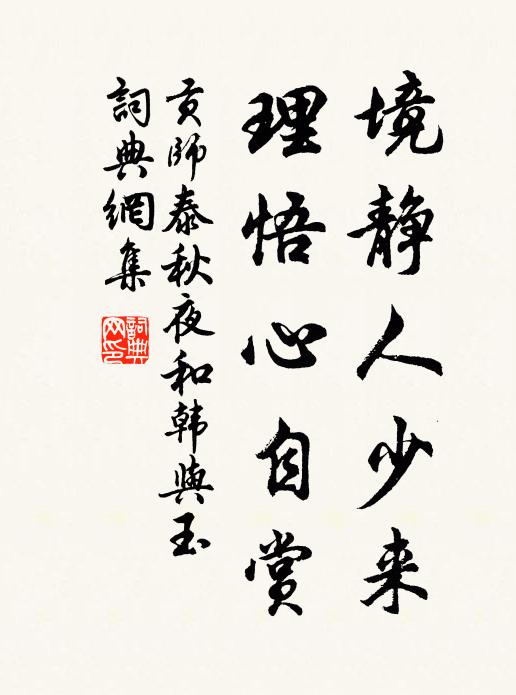 境静人少来
理悟心自赏
贡师泰秋夜和韩与玉
詞典網集
詞典网印